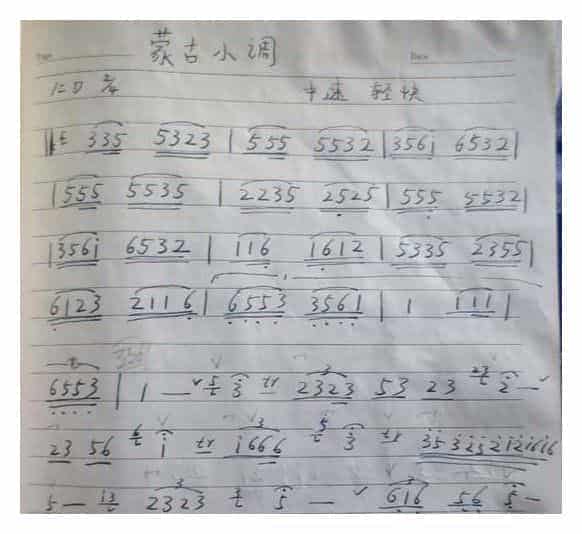 蒙古小调
1=D 2/4 中速 轻快
335 5323 | 555 5532 | 3561 6532 |
| 555 5535 | 2235 2525 | 555 5532 |
| 3561 6532 | 116 1612 | 5335 2355 |
6123 2116 | 6553 3561 | 1 111 |
6553 | 1 — 3 tr 2323 53 23 2 —
23 56 1 tr 1666 3 tr
5 — 2323 5 — 616 56 5 —